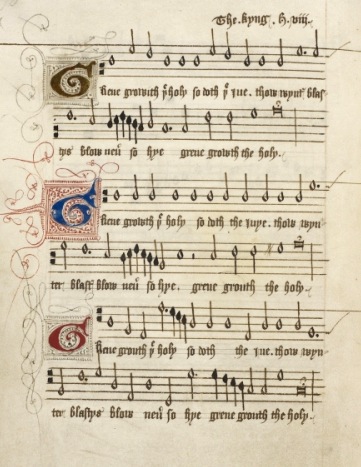 The . kyng . h . viij .
Grene growith yᵉ holy so doth yᵉ iue . thow wynt' blas
tys blow neu' so hye grene growth the holy .
Grene growth yᵉ holy so doth the iuye . thow wyn
ter blastˢ blow neu' so hye . grene growth the holy .
Grene growth yᵉ holy so doth the iue . thow wyn
ter blastys blow neu' so hye grene growth the holy .